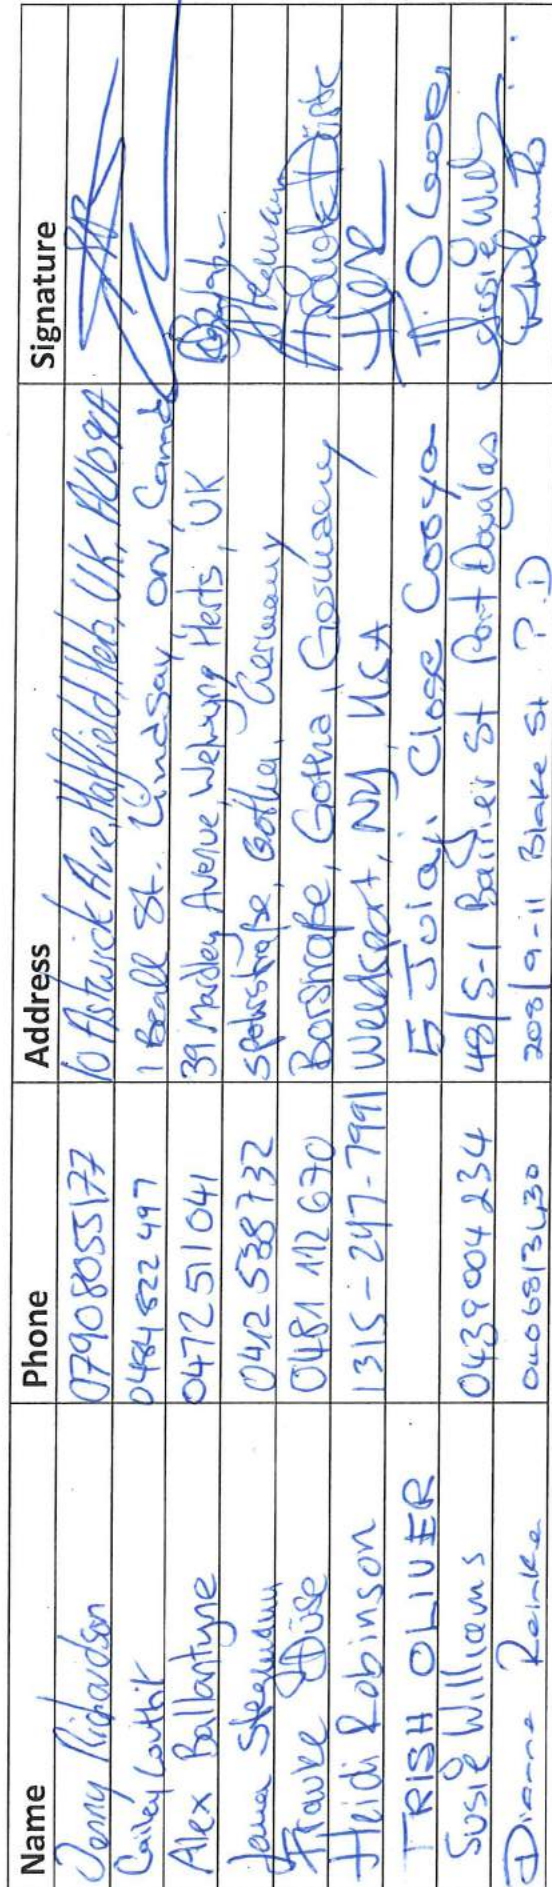 Name Phone Address Signature
Jenny Richardson 07908055177 10 Astwick Ave, Hatfield, Herts, UK, AL10 9LA
Cailey 0484 822 497 1 Beall St. Lindsay ON, Canada
Alex Ballantyne 0472 511 041 39 Mardley Avenue, Welwyn, Herts, UK
Jana Stegmann 0412 538 732 Spohrstraße, Gotha, Germany Stegmann
Frauke Düse 0481 112 670 Gotha, Germany Frauke Düse
Heidi Robinson 1315-247-7991 Weedsport, NY, USA
TRISH OLIVER 5 Close Cooya
Susie Williams 0439004234 48/5-1 Barrier St Port Douglas Susie
Dianne Reinke 0406813430 208/9-11 Blake St P.D